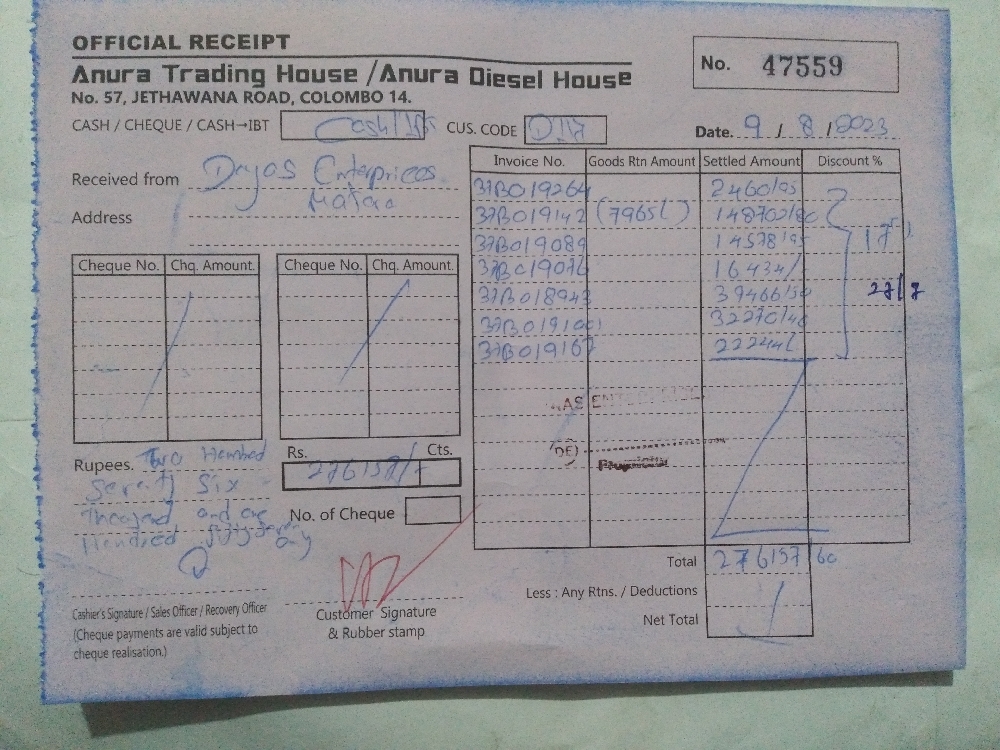 OFFICIAL RECEIPT
Anura Trading House / Anura Diesel House
No. 57, JETHAWANA ROAD, COLOMBO 14.
No. 47559
CASH / CHEQUE / CASH→IBT Cash/ CUS. CODE
Date. 9 / 8 / 2023
Received from Dayas Enterprices
Matara
Address
Invoice No. Goods Rtn Amount Settled Amount Discount %
37B019264 2460/95
37B019142 (7965/) 148702/80
37B019089 14578/95
37B019076 16434/
37B018943 39466/50
37B019100 32270/40
37B019167 22244/
17
27/7
Cheque No. Chq. Amount. Cheque No. Chq. Amount.
Rupees. Two Hundred
Seventy Six
Thousand and one
Hundred fifty seven only
Rs. Cts.
276157/
No. of Cheque
Total 276157 60
Less : Any Rtns. / Deductions
Net Total
Cashier's Signature / Sales Officer / Recovery Officer
(Cheque payments are valid subject to
cheque realisation.)
Customer Signature
& Rubber stamp